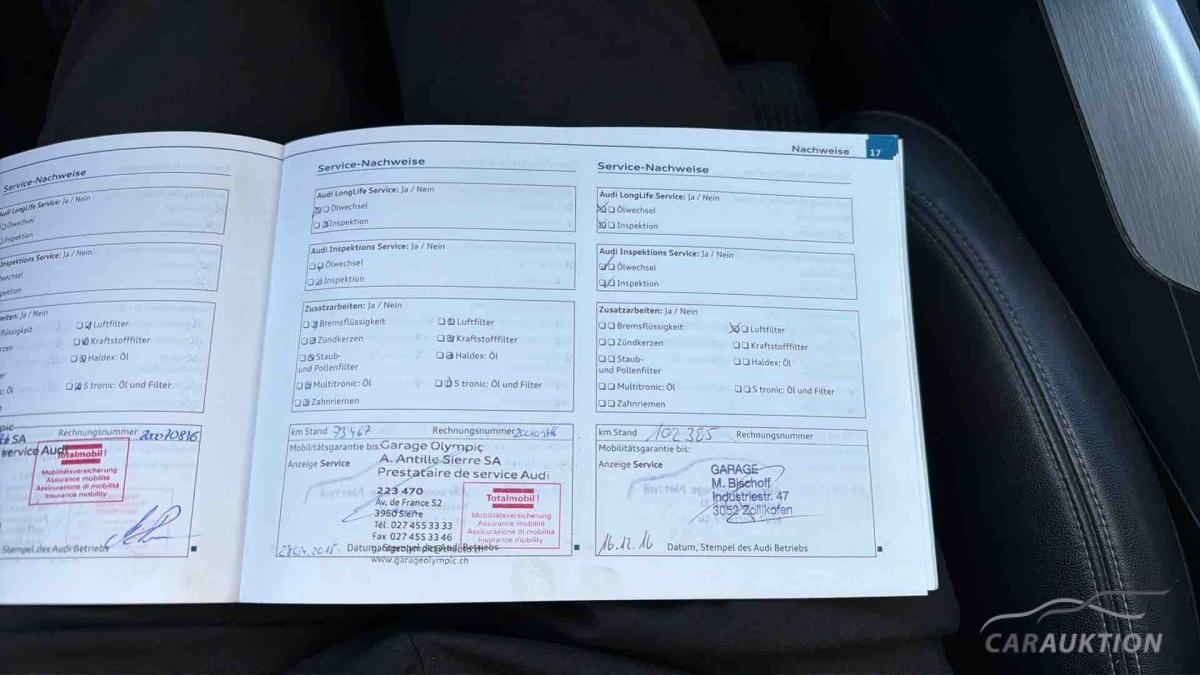 Nachweise 17
Service-Nachweise
Audi LongLife Service: Ja / Nein
Ölwechsel
Inspektion
Inspektions Service: Ja / Nein
Ja / Nein
Luftfilter
Kraftstofffilter
Haldex: Öl
S tronic: Öl und Filter
Rechnungsnummer 20070816
SA
service Audi
Totalmobil!
Mobilitätsversicherung
Assurance mobilité
Assicurazione di mobilità
Insurance mobility
Stempel des Audi Betriebs
Service-Nachweise
Audi LongLife Service: Ja / Nein
Ölwechsel
Inspektion
Audi Inspektions Service: Ja / Nein
Ölwechsel
Inspektion
Zusatzarbeiten: Ja / Nein
Bremsflüssigkeit Luftfilter
Zündkerzen Kraftstofffilter
Staub- Haldex: Öl
und Pollenfilter
Multitronic: Öl S tronic: Öl und Filter
Zahnriemen
km Stand 73'467 Rechnungsnummer
Mobilitätsgarantie bis: Garage Olympic
A. Antille Sierre SA
Anzeige Service Prestataire de service Audi
223 470
Av. de France 52
3960 Sierre
Tél. 027 455 33 33
Fax 027 455 33 46
Totalmobil!
Mobilitätsversicherung
Assurance mobilité
Assicurazione di mobilità
Insurance mobility
28.04.2015 Datum, Betriebs
www.garageolympic.ch
Service-Nachweise
Audi LongLife Service: Ja / Nein
Ölwechsel
Inspektion
Audi Inspektions Service: Ja / Nein
Ölwechsel
Inspektion
Zusatzarbeiten: Ja / Nein
Bremsflüssigkeit Luftfilter
Zündkerzen Kraftstofffilter
Staub- Haldex: Öl
und Pollenfilter
Multitronic: Öl S tronic: Öl und Filter
Zahnriemen
km Stand 102385 Rechnungsnummer
Mobilitätsgarantie bis:
Anzeige Service
GARAGE
M. Bischoff
Industriestr. 47
3052 Zollikofen
16.12.16 Datum, Stempel des Audi Betriebs
CARAUKTION